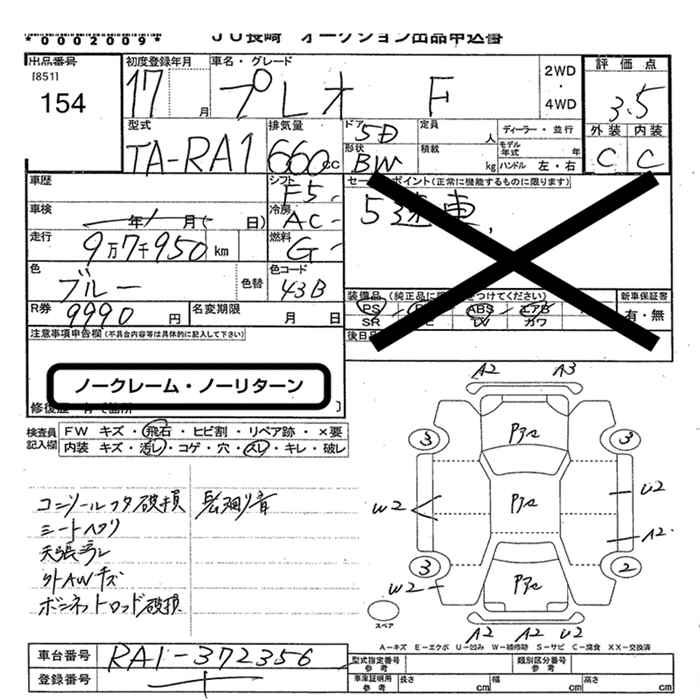 *0002009*
JU長崎 オークション出品申込書
出品番号 [851] 154
初度登録年月 17 月
車名・グレード プレオ F
2WD・4WD
評価点 3.5
外装 C 内装 C
型式 TA-RA1
排気量 660 cc
ドア 5D
形状 BW
定員 人
積載 kg
ディーラー・並行
モデル年式 年
ハンドル 左・右
車歴
シフト F5
セー ポイント(正常に機能するものに限ります)
5速車
車検 年 月( 日)
冷房 AC
走行 9万7千950 km
燃料 G
色 ブルー
色替
色コード 43B
装備品(純正品に つけてください)
PS ABS エアB
SR カワ
新車保証書 有・無
R券 9990 円
名変期限 月 日
後日
注意事項申告欄(不具合内容等は具体的に記入して下さい)
ノークレーム・ノーリターン
修復歴
検査員記入欄
FW キズ・飛石・ヒビ割・リペア跡・×要
内装 キズ・汚し・コゲ・穴・スレ・キレ・破レ
コンソールフタ破損
シートヘタリ
天張ヨゴレ
外AWキズ
ボンネットロッド破損
A2 A3
3 3
W2 U2
A2
3 2
W2
A2 A2 U2
スペア
A-キズ E-エクボ U-凹み W-補修跡 S-サビ C-腐食 XX-交換済
車台番号 RA1-372356
登録番号
型式指定番号 参考
類別区分番号 参考
車庫証明用 参考 長さ cm 幅 cm 高さ cm